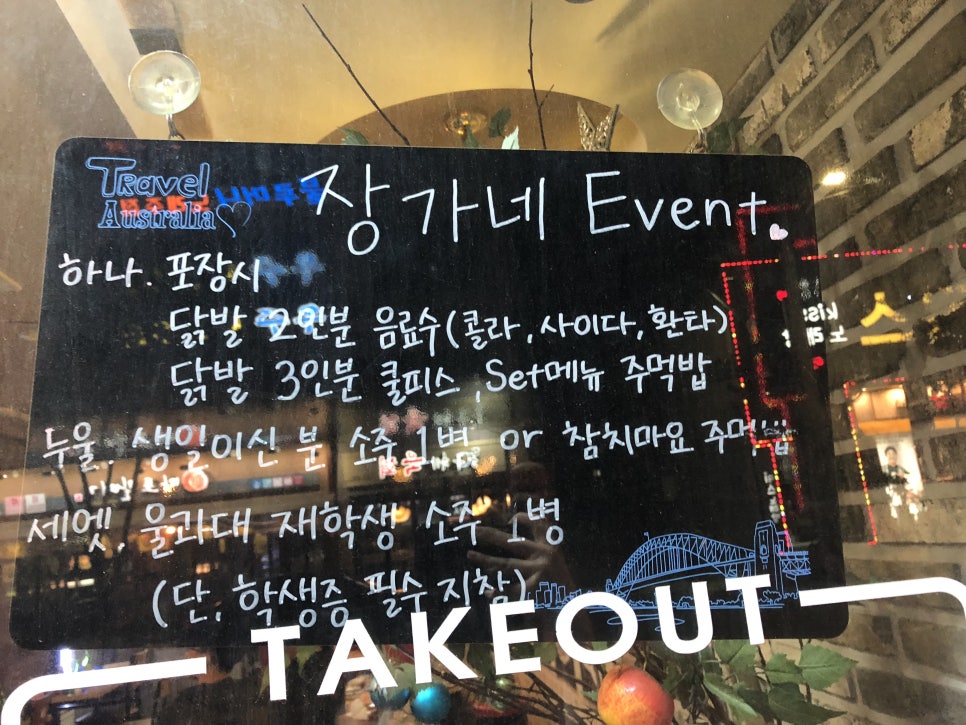 Travel
Australia
장가네 Event
하나. 포장시
닭발 2인분 음료수(콜라, 사이다, 환타)
닭발 3인분 쿨피스, Set메뉴 주먹밥
두울. 생일이신 분 소주 1병 or 참치마요 주먹밥
세엣. 울과대 재학생 소주 1병
(단, 학생증 필수 지참)
TAKEOUT